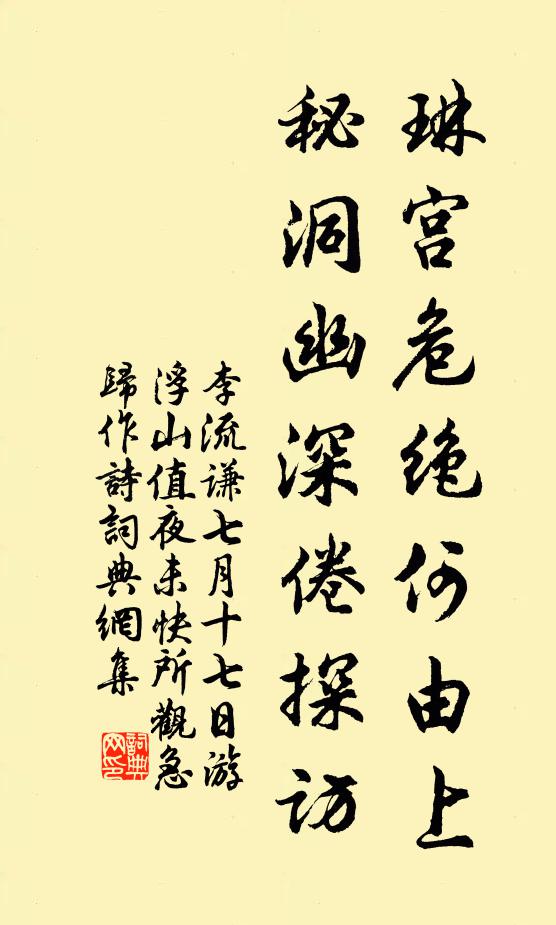 琳宫危绝何由上
秘洞幽深倦探访
李流谦七月十七日游
浮山值夜未快所觀急
歸作詩詞典網集
詞典网印